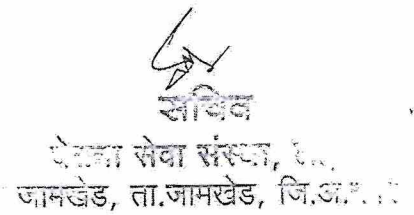 सचिव
सेवा संस्था,
जामखेड, ता.जामखेड, जि.अ.